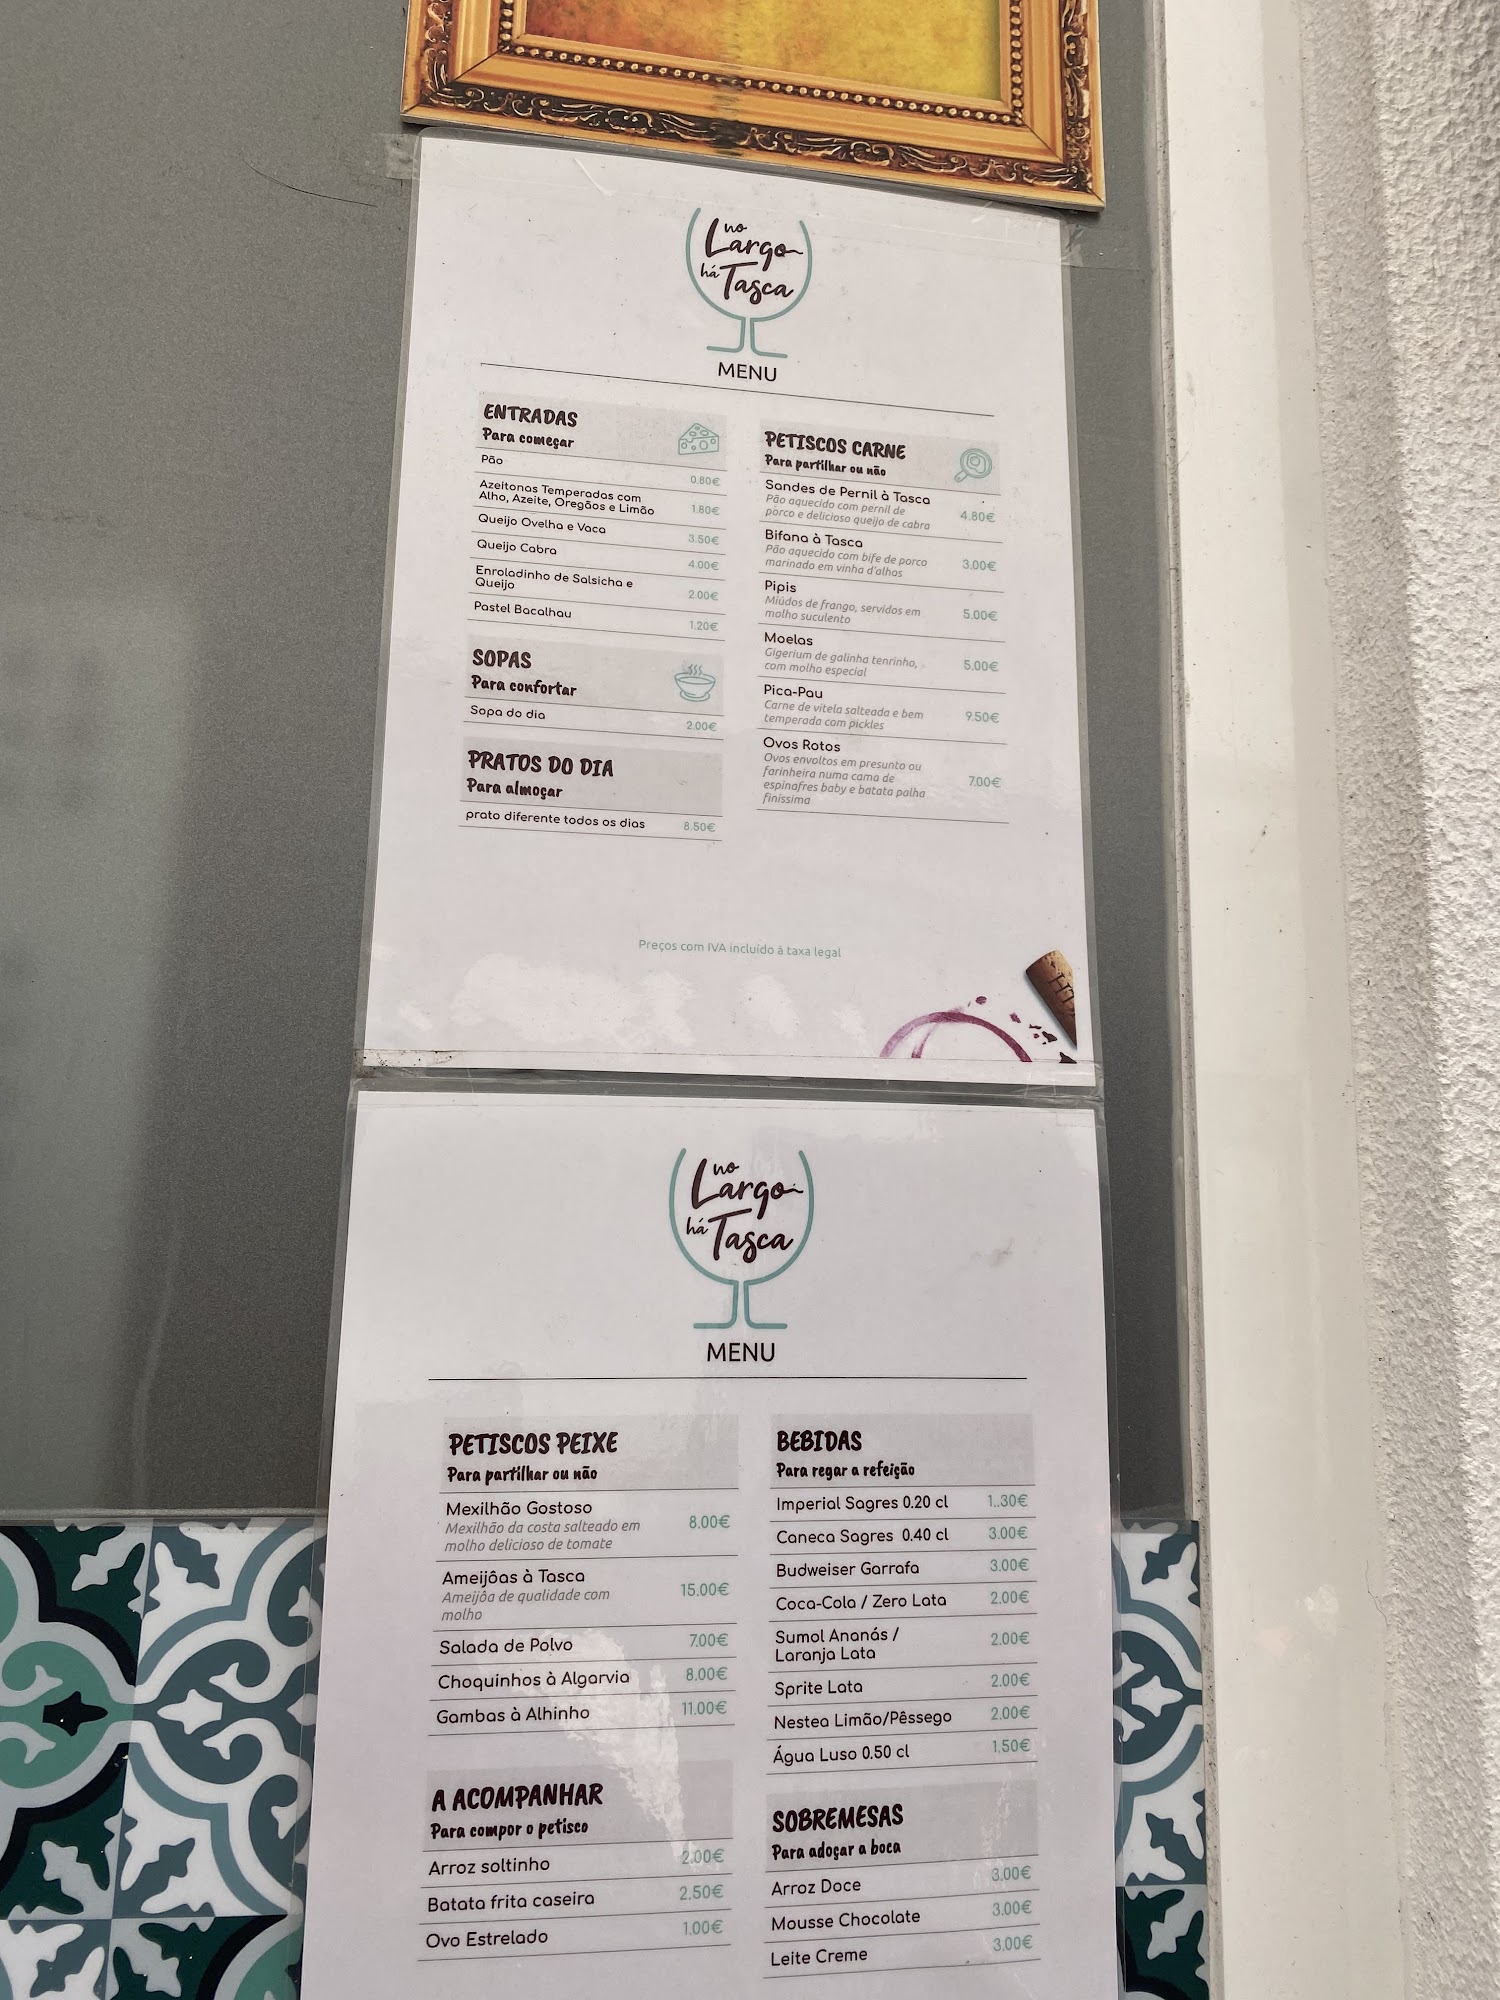 no
Largo
há Tasca
MENU
ENTRADAS
Para começar
Pão
0.80€
Azeitonas Temperadas com
Alho, Azeite, Oregãos e Limão
1.80€
Queijo Ovelha e Vaca
3.50€
Queijo Cabra
4.00€
Enroladinho de Salsicha e
Queijo
2.00€
Pastel Bacalhau
1.20€
SOPAS
Para confortar
Sopa do dia
2.00€
PRATOS DO DIA
Para almoçar
prato diferente todos os dias 8.50€
PETISCOS CARNE
Para partilhar ou não
Sandes de Pernil à Tasca
Pão aquecido com pernil de
porco e delicioso queijo de cabra
4.80€
Bifana à Tasca
Pão aquecido com bife de porco
marinado em vinha d'alhos
3.00€
Pipis
Miúdos de frango, servidos em
molho suculento
5.00€
Moelas
Gigerium de galinha tenrinho,
com molho especial
5.00€
Pica-Pau
Carne de vitela salteada e bem
temperada com pickles
9.50€
Ovos Rotos
Ovos envoltos em presunto ou
farinheira numa cama de
espinafres baby e batata palha
finíssima
7.00€
Preços com IVA incluído à taxa legal
no
Largo
há Tasca
MENU
PETISCOS PEIXE
Para partilhar ou não
Mexilhão Gostoso
Mexilhão da costa salteado em
molho delicioso de tomate
8.00€
Ameijôas à Tasca
Ameijôa de qualidade com
molho
15.00€
Salada de Polvo 7.00€
Choquinhos à Algarvia 8.00€
Gambas à Alhinho 11.00€
A ACOMPANHAR
Para compor o petisco
Arroz soltinho 2.00€
Batata frita caseira 2.50€
Ovo Estrelado 1.00€
BEBIDAS
Para regar a refeição
Imperial Sagres 0.20 cl 1..30€
Caneca Sagres 0.40 cl 3.00€
Budweiser Garrafa 3.00€
Coca-Cola / Zero Lata 2.00€
Sumol Ananás /
Laranja Lata
2.00€
Sprite Lata 2.00€
Nestea Limão/Pêssego 2.00€
Água Luso 0.50 cl 1.50€
SOBREMESAS
Para adoçar a boca
Arroz Doce 3.00€
Mousse Chocolate 3.00€
Leite Creme 3.00€